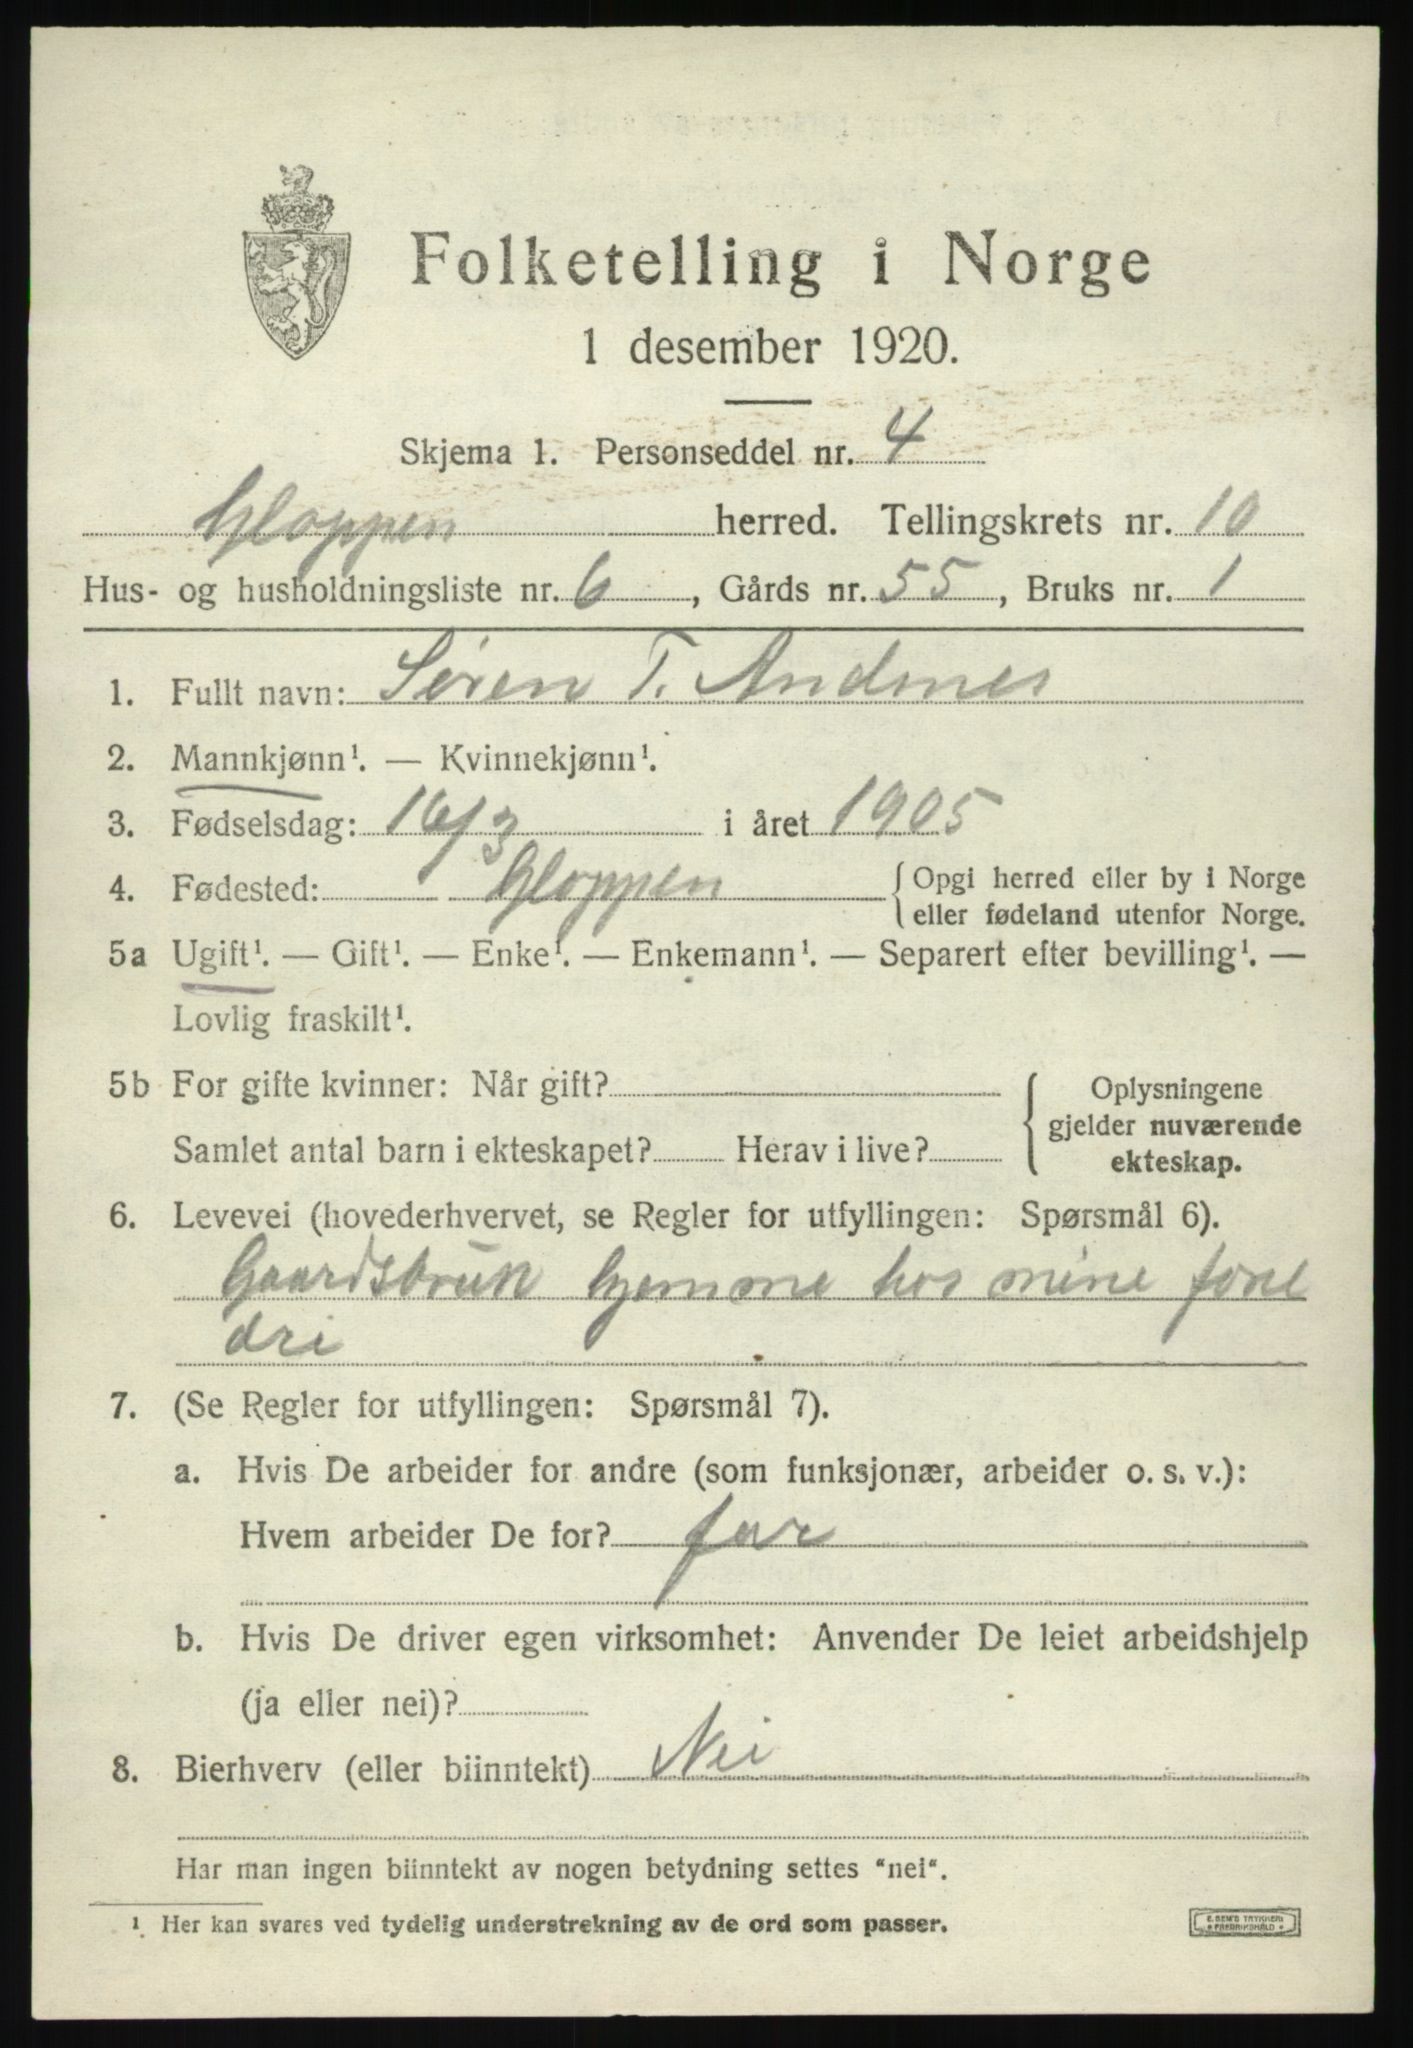 Folketelling i Norge
1 desember 1920.
Skjema 1. Personseddel nr. 4
Gloppen herred. Tellingskrets nr. 10
Hus- og husholdningsliste nr. 6, Gårds nr. 55, Bruks nr. 1
1. Fullt navn: Søren T. Andenes
2. Mannkjønn¹. — Kvinnekjønn¹.
3. Fødselsdag: 16/3 i året 1905
4. Fødested: Gloppen { Opgi herred eller by i Norge
eller fødeland utenfor Norge.
5a Ugift¹. — Gift¹. — Enke¹. — Enkemann¹. — Separert efter bevilling¹. —
Lovlig fraskilt¹.
5b For gifte kvinner: Når gift?
Samlet antal barn i ekteskapet? Herav i live?
Oplysningene
gjelder nuværende
ekteskap.
6. Levevei (hovederhvervet, se Regler for utfyllingen: Spørsmål 6).
Gaardsbruk hjemme hos mine forel
dri
7. (Se Regler for utfyllingen: Spørsmål 7).
a. Hvis De arbeider for andre (som funksjonær, arbeider o. s. v.):
Hvem arbeider De for? far
b. Hvis De driver egen virksomhet: Anvender De leiet arbeidshjelp
(ja eller nei)?
8. Bierhverv (eller biinntekt) Nei
Har man ingen biinntekt av nogen betydning settes "nei".
¹ Her kan svares ved tydelig understrekning av de ord som passer.
E. SEM'S TRYKKERI
FREDRIKSHALD